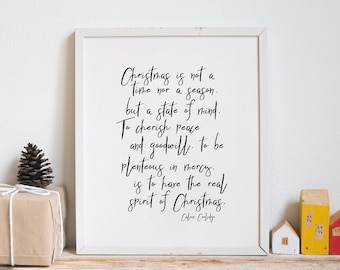 Christmas is not a
time nor a season,
but a state of mind.
To cherish peace
and goodwill, to be
plenteous in mercy,
is to have the real
spirit of Christmas.
Calvin Coolidge